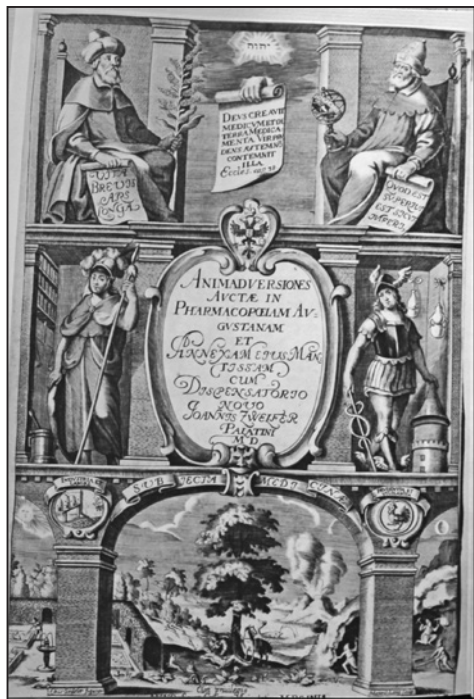 יהוה
DEUS CREAVIT
MEDICUM, ET DE
TERRA MEDICA-
MENTA, VIR PRU
DENS AUTEM NON
CONTEMNIT
ILLA
VITA
BREVIS
ARS
LONGA
QUOD EST
SUPERIUS
EST SICUT
INFERI,
ANIMADVERSIONES
AVCTÆ IN
PHARMACOPŒIAM AV-
GVSTANAM
ET
ANNEXAM EIUS MAN
TISSAM
CUM
DISPENSATORIO
NOVO
IOANNIS ZWELFER
PALATINI
M D
SUB IECTA MEDICINÆ